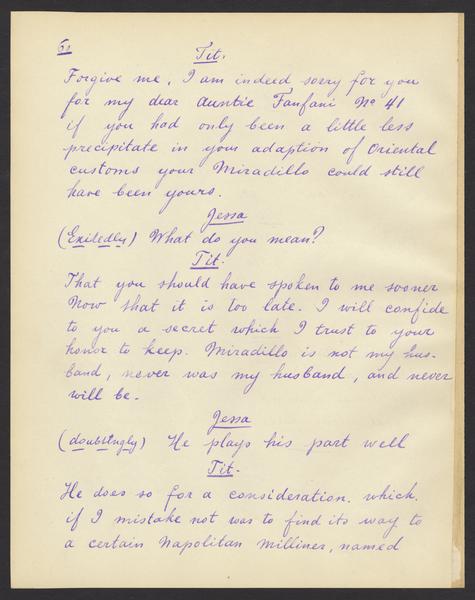 6.
Tit.
Forgive me. I am indeed sorry for you
for my dear Auntie Fanfani No 41
if you had only been a little less
precipitate in your adaption of Oriental
customs your Miradillo could still
have been yours.
Jessa
(Exitedly) What do you mean?
Tit.
That you should have spoken to me sooner
Now that it is too late. I will confide
to you a secret which I trust to your
honor to keep. Miradillo is not my hus-
band, never was my husband, and never
will be.
Jessa
(doubtingly) He plays his part well
Tit.
He does so for a consideration. which.
if I mistake not was to find its way to
a certain Napolitan Milliner, named